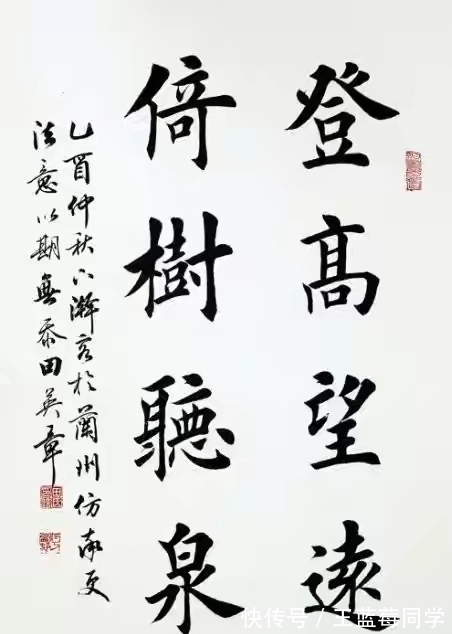 登高望遠
倚樹聽泉
乙酉仲秋下澣客於蘭州仿率更
法意以期無忝田英章
快传号 / 王蓝莓同学